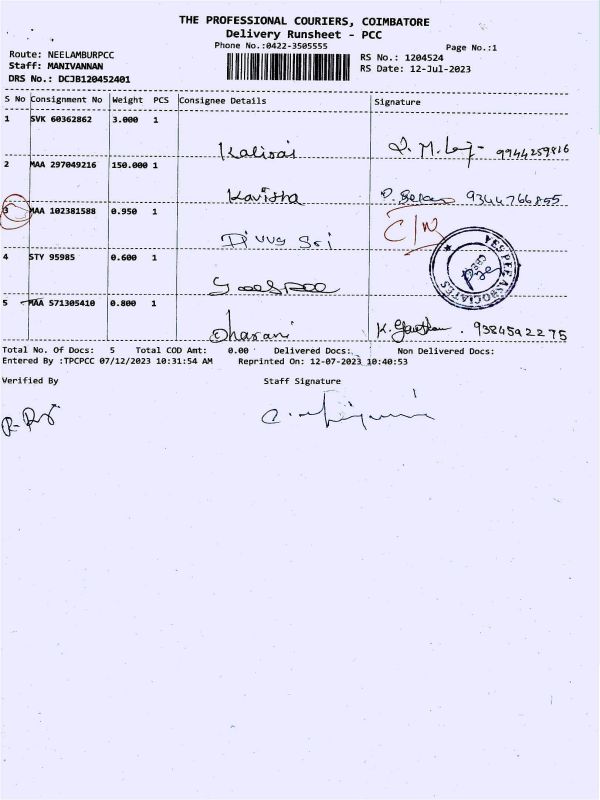 THE PROFESSIONAL COURIERS, COIMBATORE
Delivery Runsheet - PCC
Phone No.:0422-3505555
Page No.:1
Route: NEELAMBURPCC
Staff: MANIVANNAN
DRS No.: DCJB120452401
RS No.: 1204524
RS Date: 12-Jul-2023
S No Consignment No Weight PCS Consignee Details Signature
1 SVK 60362862 3.000 1
9944259816
2 MAA 297049216 150.000 1
Kavisha 9344766855
3 MAA 102381588 0.950 1
Divya Sri
4 STY 95985 0.600 1
YES PEE ASSOCIATES
5 MAA 571305410 0.800 1
Dharani K. 9384592275
Total No. Of Docs: 5 Total COD Amt: 0.00 Delivered Docs: Non Delivered Docs:
Entered By :TPCPCC 07/12/2023 10:31:54 AM Reprinted On: 12-07-2023 10:40:53
Verified By Staff Signature